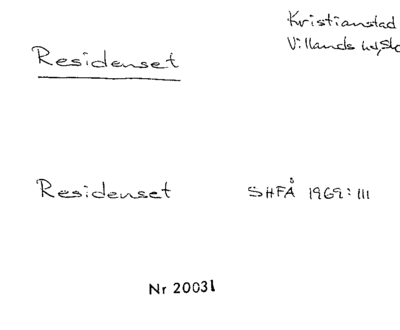 Kristianstad
Villands hd, Skå
Residenset
Residenset SHFÅ 1969:111
Nr 20031